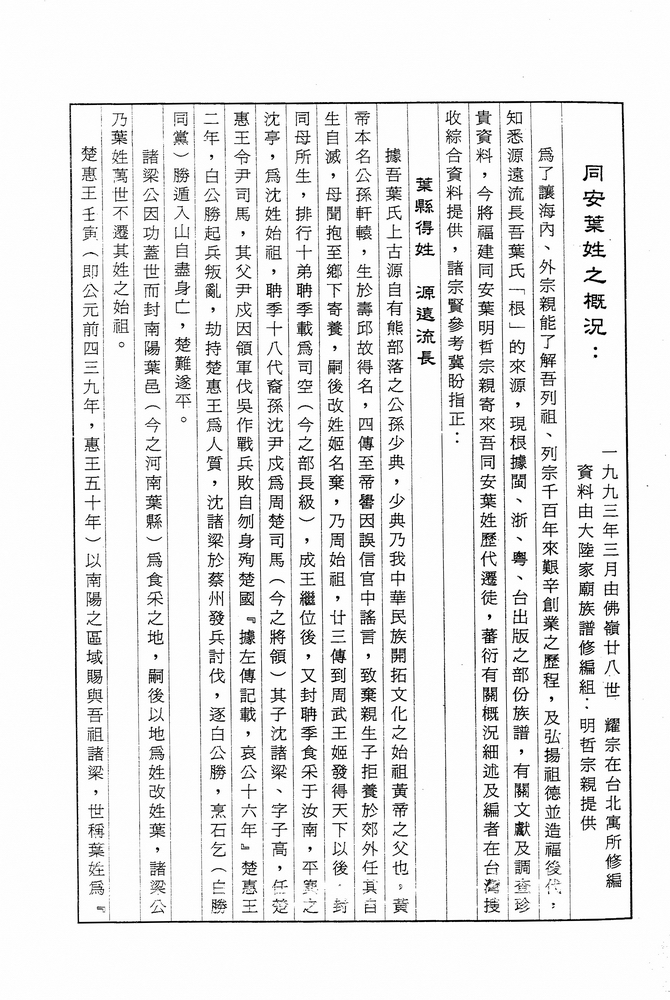 同安葉姓之概況：
一九九三年三月由佛嶺廿八世　耀宗在台北寓所修編
資料由大陸家廟族譜修編組：明哲宗親提供
為了讓海內、外宗親能了解吾列祖、列宗千百年來艱辛創業之歷程，及弘揚祖德並造福後代，
知悉源遠流長吾葉氏「根」的來源，現根據閩、浙、粵、台出版之部份族譜，有關文獻及調查珍
貴資料，今將福建同安葉明哲宗親寄來吾同安葉姓歷代遷徒，蕃衍有關概況細述及編者在台灣搜
收綜合資料提供，諸宗賢參考冀盼指正：
葉縣得姓　源遠流長
據吾葉氏上古源自有熊部落之公孫少典，少典乃我中華民族開拓文化之始祖黃帝之父也。黃
帝本名公孫軒轅，生於壽邱故得名，四傳至帝嚳因誤信官中謠言，致棄親生子拒養於郊外任其自
生自滅，母聞抱至鄉下寄養，嗣後改姓姬名棄，乃周始祖，廿三傳到周武王姬發得天下以後，封
同母所生，排行十弟聃季載爲司空（今之部長級），成王繼位後，又封聃季食采于汝南，平輿之
沈亭，爲沈姓始祖，聃季十八代裔孫沈尹戍爲周楚司馬（今之將領）其子沈諸梁、字子高，任楚
惠王令尹司馬，其父尹戍因領軍伐吳作戰兵敗自刎身殉楚國『據左傳記載，哀公十六年』楚惠王
二年，白公勝起兵叛亂，劫持楚惠王爲人質，沈諸梁於蔡州發兵討伐，逐白公勝，烹石乞（白勝
同黨）勝遁入山自盡身亡，楚難遂平。
諸梁公因功蓋世而封南陽葉邑（今之河南葉縣）爲食采之地，嗣後以地爲姓改姓葉，諸梁公
乃葉姓萬世不遷其姓之始祖。
楚惠王壬寅（即公元前四三九年，惠王五十年）以南陽之區域賜與吾祖諸梁，世稱葉姓爲『